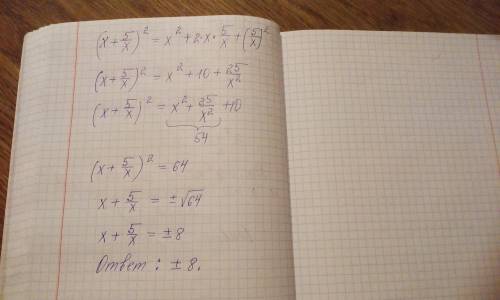 (x + 5/x)² = x² + 2·x·5/x + (5/x)²
(x + 5/x)² = x² + 10 + 25/x²
(x + 5/x)² = x² + 25/x² + 10
54
(x + 5/x)² = 64
x + 5/x = ±√64
x + 5/x = ±8
Ответ: ±8.